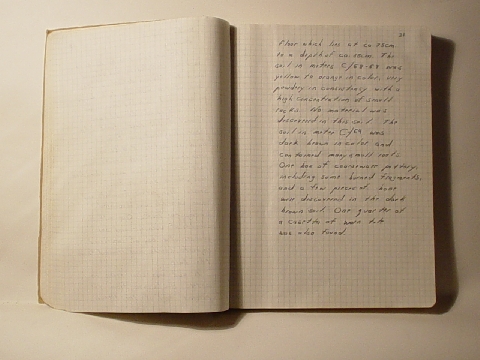 33
floor which lies at ca. 75cm
to a depth of ca.
soil in meters C/68-69 was
yellow to orange in color, very
powdery in consistency with a
high concentration of small
rocks. No material was
discovered in this soil. The
soil in meter C/69 was
dark brown in color and
contained many small roots.
One box of coarseware pottery,
including some burned fragments,
and a few pieces of bone
were discovered in the dark
brown soil. One quarter of
a
was also found.